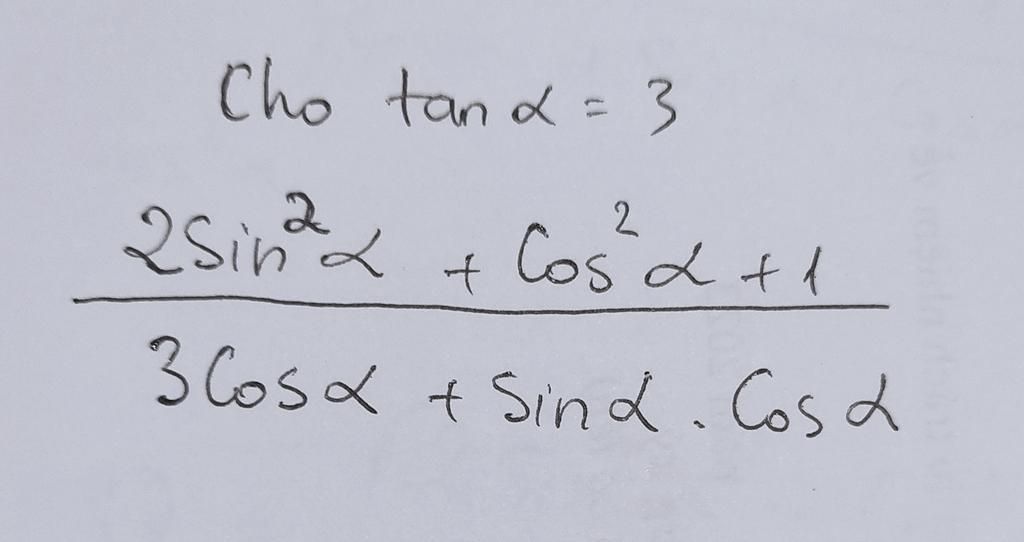 Cho tan α = 3
2Sin²α + Cos²α + 1
3Cosα + Sinα . Cosα